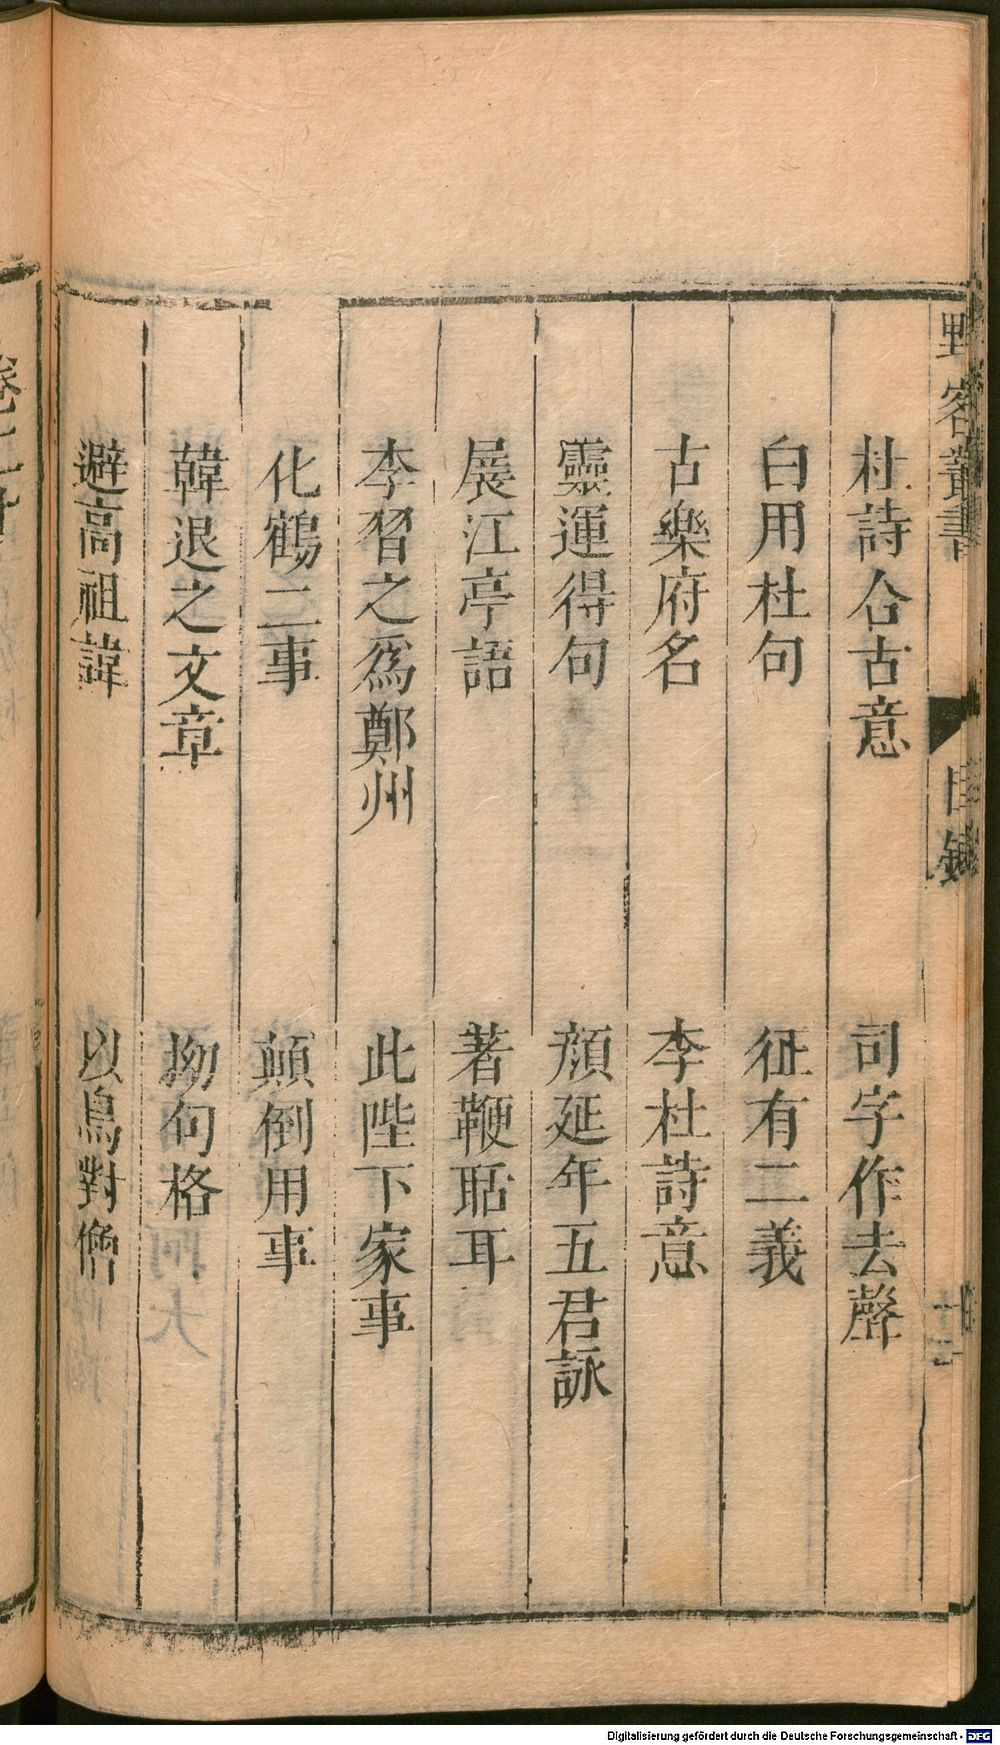 野客叢書 目錄
杜詩合古意 司字作去聲
白用杜句 征有二義
古樂府名 李杜詩意
靈運得句 顏延年五君詠
展江亭語 著鞭聒耳
李習之爲鄭州 此陛下家事
化鶴二事 顛倒用事
韓退之文章 拗句格
避高祖諱 以鳥對僧
Digitalisierung gefördert durch die Deutsche Forschungsgemeinschaft - DFG